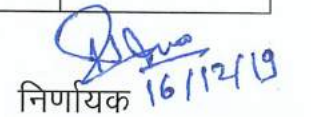 निर्णायक 16/12/19